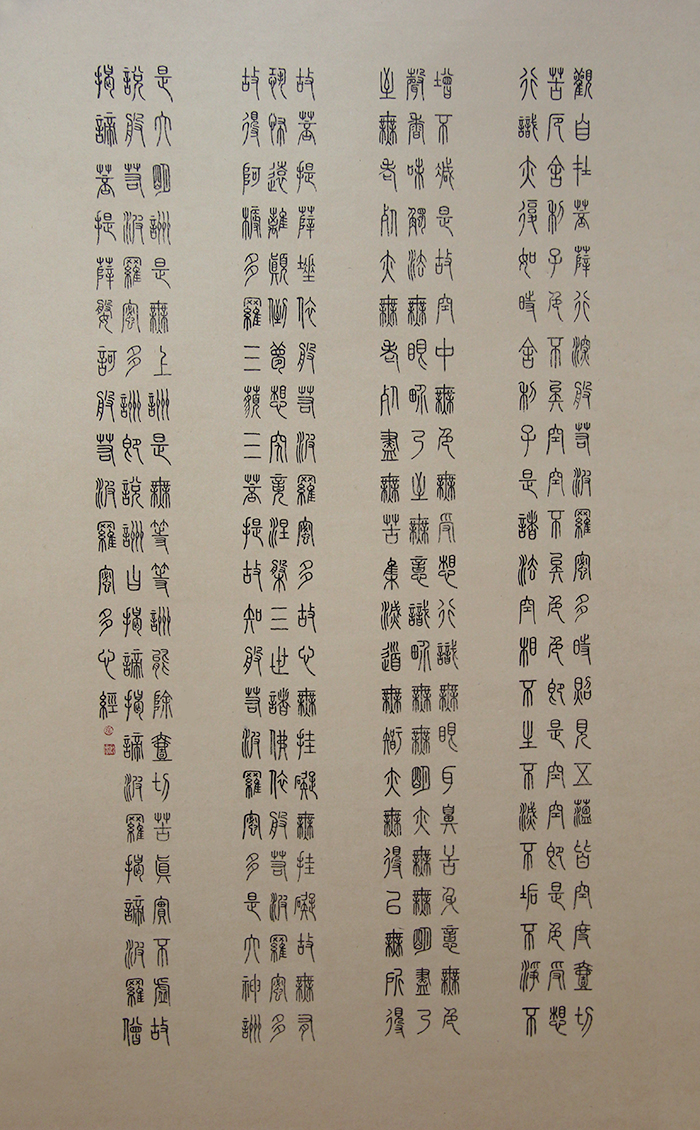 觀自在菩薩行深般若波羅蜜多時照見五蘊皆空度壹切
苦厄舍利子色不異空空不異色色即是空空即是色受想
行識亦復如時舍利子是諸法空相不生不滅不垢不淨不
增不減是故空中無色無受想行識無眼耳鼻舌身意無色
聲香味觸法無眼界乃至無意識界無無明亦無無明盡乃
至無老死亦無老死盡無苦集滅道無智亦無得以無所得
故菩提薩埵依般若波羅蜜多故心無挂礙無挂礙故無有
恐怖遠離顛倒夢想究竟涅槃三世諸佛依般若波羅蜜多
故得阿耨多羅三藐三菩提故知般若波羅蜜多是大神詶
是大明詶是無上詶是無等等詶能除壹切苦真實不虛故
說般若波羅蜜多詶即說詶曰揭諦揭諦波羅揭諦波羅僧
揭諦菩提薩婆訶般若波羅蜜多心經